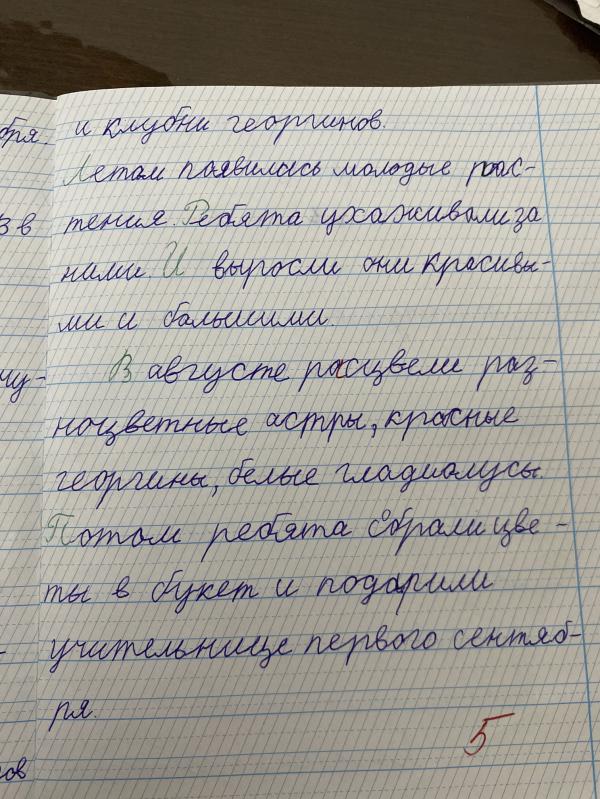 и клубни георгинов.
бря.
Летом появилась молодые рас-
тения. Ребята ухаживали за
з в
ними. И выросли они красивы-
ми и большими.
В августе расцвели раз-
чу-
ноцветные астры, красные
георгины, белые гладиолусы.
Потом ребята собрали цве-
ты в букет и подарили
учительнице первого сентяб-
ря.
5
ов